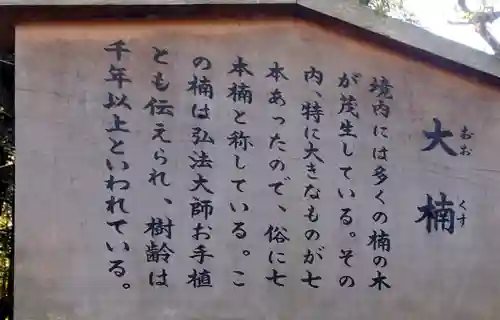 大楠
おお
くす
境内には多くの楠の木
が茂生している。その
内、特に大きなものが七
本あったので、俗に七
本楠と称している。こ
の楠は弘法大師お手植
とも伝えられ、樹齢は
千年以上といわれている。